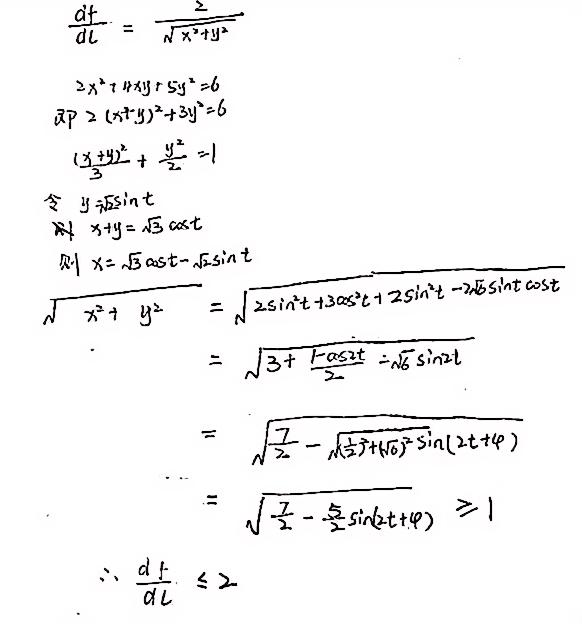 df/dl = 2/√(x²+y²)
2x²+4xy+5y²=6
即 2(x+y)²+3y²=6
(x+y)²/3 + y²/2 =1
令 y=√2sint
x+y=√3cost
则 x=√3cost-√2sint
√(x²+y²) = √(2sin²t+3cos²t+2sin²t-2√6sintcost)
= √(3+(1-cos2t)/2-√6sin2t)
= √(7/2-√((1/2)²+(√6)²)sin(2t+φ))
= √(7/2-5/2sin(2t+φ)) ≥1
∴ df/dl ≤2